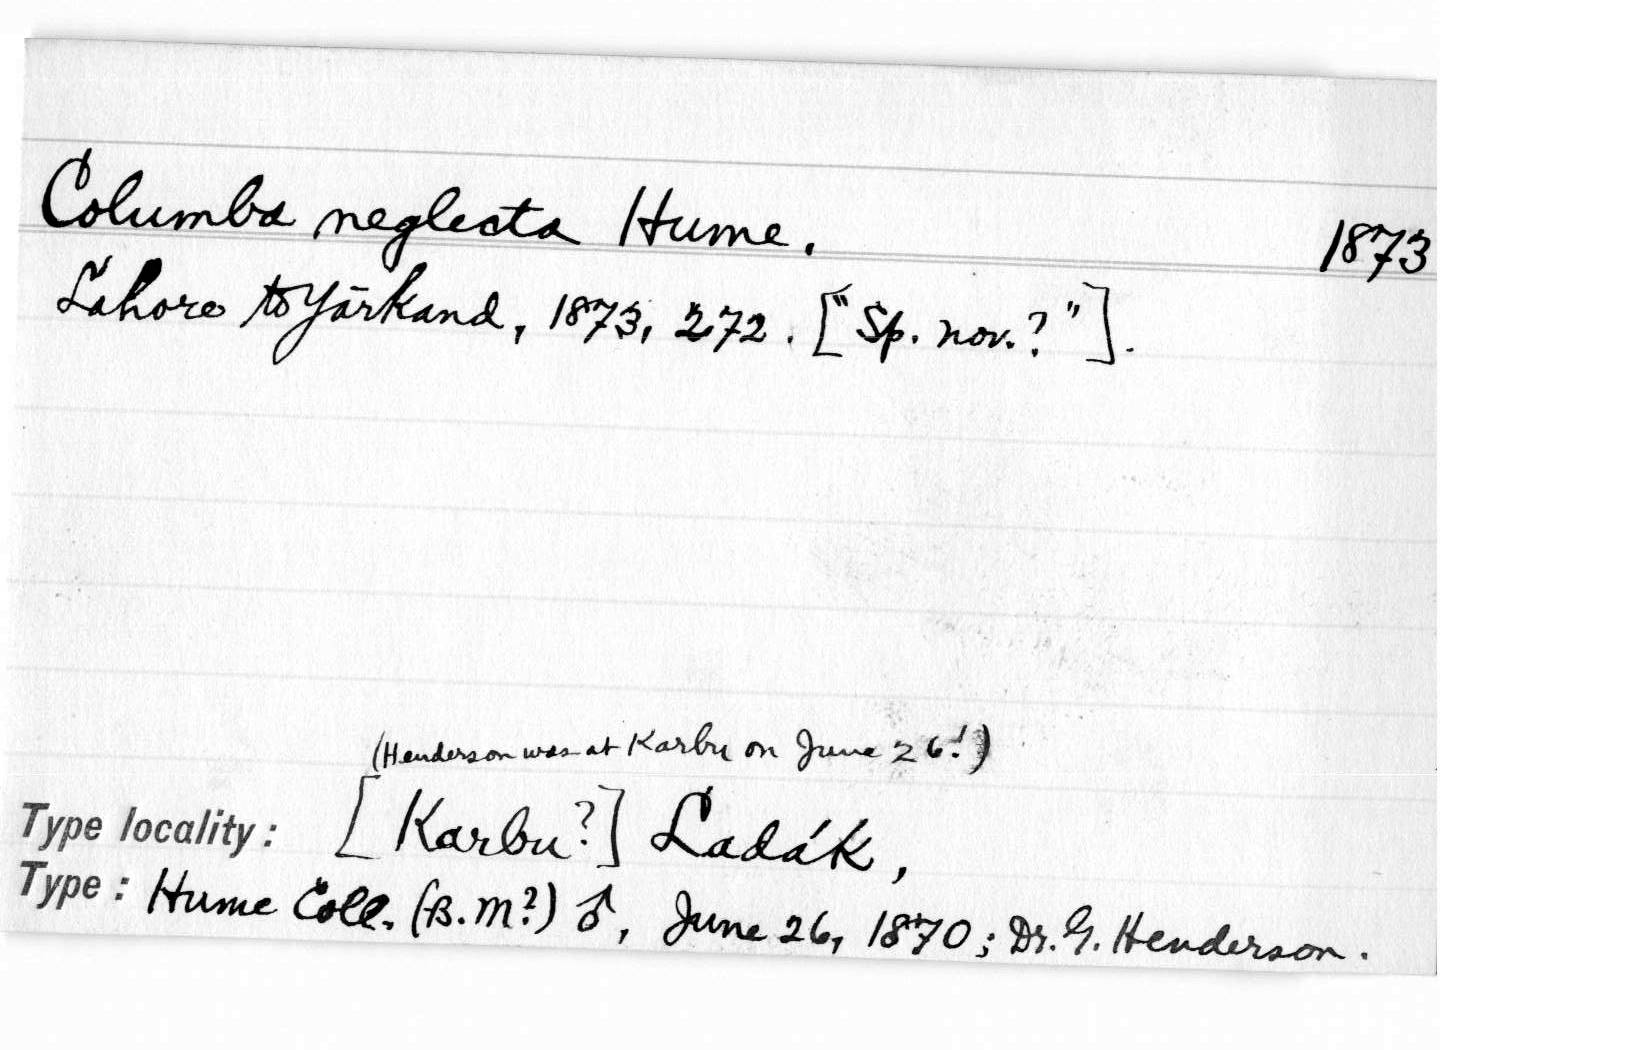 Columba neglecta Hume. 1873
Lahore to Yārkand, 1873, 272. ["Sp. nov.?"].
(Henderson was at Karbu on June 26!)
Type locality: [Karbu?] Ladák,
Type: Hume Coll. (B.M?) ♂, June 26, 1870; Dr. G. Henderson.